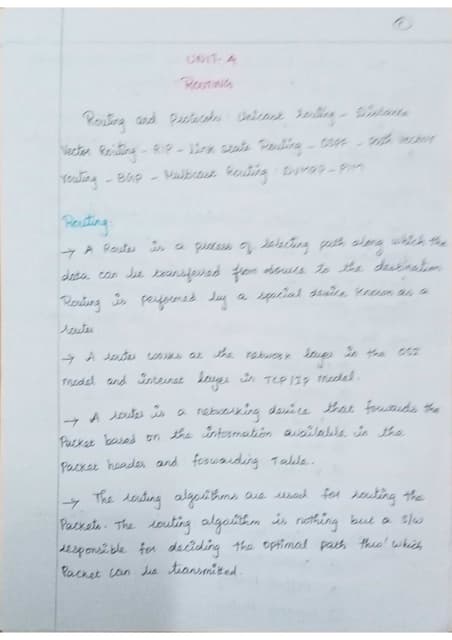 1
UNIT-4
ROUTING
Routing and Protocols: Unicast routing - Distance
Vector Routing - RIP - Link state Routing - OSPF - Path vector
routing - BGP - Multicast Routing: DVMRP - PIM
Routing:
→ A Router is a process of selecting path along which the
data can be transferred from source to the destination
Routing is performed by a special device known as a
router
→ A router works at the network layer in the OSI
model and internet layer in TCP/IP model.
→ A router is a networking device that forwards the
Packet based on the information available in the
Packet header and forwarding Table.
→ The routing algorithms are used for routing the
Packets. The routing algorithm is nothing but a S/W
responsible for deciding the optimal path thro' which
Packet can be transmitted.